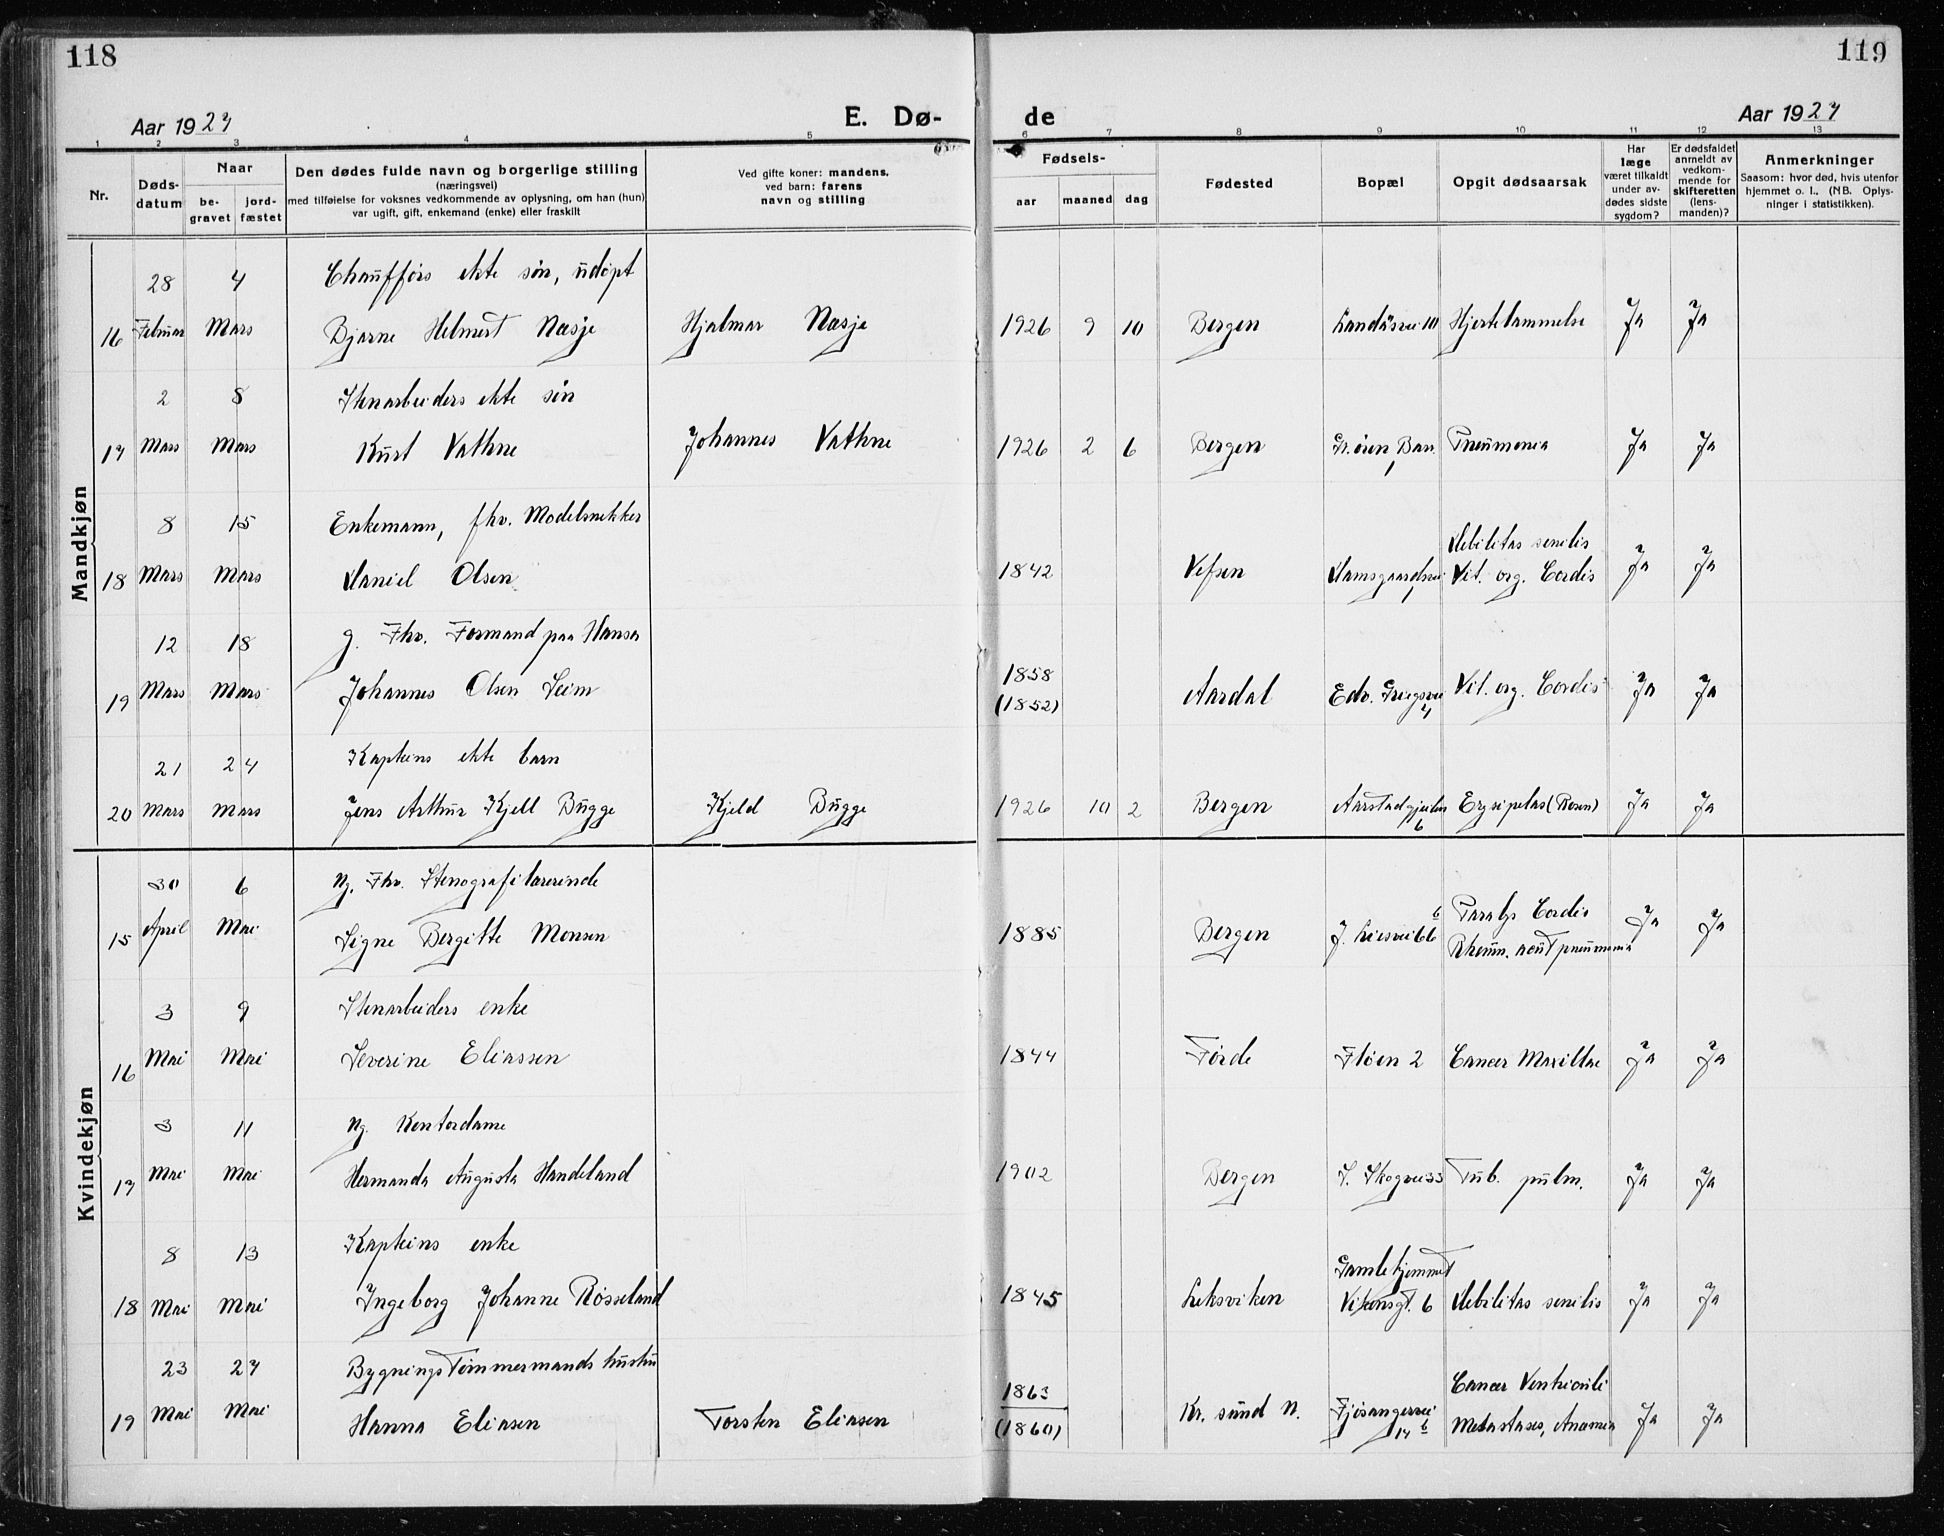 118
119
Aar 1927
E. Dø-
de
Aar 1927
1 2 3 4 5 6 7 8 9 10 11 12 13
Nr.
Døds-
datum
Naar
be-
gravet
jord-
fæstet
Den dødes fulde navn og borgerlige stilling
(næringsvei)
med tilføielse for voksnes vedkommende av oplysning, om han (hun)
var ugift, gift, enkemand (enke) eller fraskilt
Ved gifte koner: mandens,
ved barn: farens
navn og stilling
Fødsels-
aar maaned dag
Fødested
Bopæl
Opgit dødsaarsak
Har
læge
været tilkaldt
under av-
dødes sidste
sygdom?
Er dødsfaldet
anmeldt av
vedkom-
mende for
skifteretten
(lens-
manden)?
Anmerkninger
Saasom: hvor død, hvis utenfor
hjemmet o. l., (NB. Oplys-
ninger i statistikken).
Mandkjøn
28 4 Chauffførs ekte søn, udøpt
16 Februar Mars Bjarne Helmert Næsje Hjalmar Næsje 1926 9 10 Bergen Landåsvei 10 Hjertelammelse Ja Ja
2 8 Stenarbeiders ekte søn
17 Mars Mars Kurt Vathne Johannes Vathne 1926 2 6 Bergen Pneumonia Ja Ja
8 15 Enkemann, fhv. Modelsnekker Debilitas senilis
18 Mars Mars Daniel Olsen 1842 Vefsen Damsgaardsvei Vit. org. Cordis Ja Ja
12 18 g. Fhv. Formand paa Hansa
19 Mars Mars Johannes Olsen Seim 1858 Aardal Edv. Griegsvei Vit. org. Cordis Ja Ja
(1852) 4
21 24 Kapteins ekte barn
20 Mars Mars Jens Arthur Kjell Bugge Kjeld Bugge 1926 10 2 Bergen Aarstadgjeilen Erysipelas (Rosen) Ja Ja
6
Kvindekjøn
30 6 Ug. Fhv. Stenografilærerinde Paralys Cordis
15 April Mai Signe Bergitte Monsen 1885 Bergen J. Liesvei 6b Rheum. acut pneumonia Ja Ja
3 9 Stenarbeiders enke
16 Mai Mai Severine Eliassen 1844 Førde Fløen 2 Cancer Maxillae Ja Ja
3 11 Ug. Kontordame
17 Mai Mai Hermanda Augusta Handeland 1902 Bergen S. Skogvei 33 Tub. pulm. Ja Ja
8 13 Kapteins enke Gamlehjemmet
18 Mai Mai Ingeborg Johanne Røsseland 1845 Leksviken Vikensgt. 6 Debilitas senilis Ja Ja
23 27 Bygnings Tømmermands hustru Cancer Ventriculi
19 Mai Mai Hanna Eliasen Torsten Eliasen 1863 Kr. sund N. Fjøsangervei Metastases, Anæmia Ja Ja
(1860) 14 b